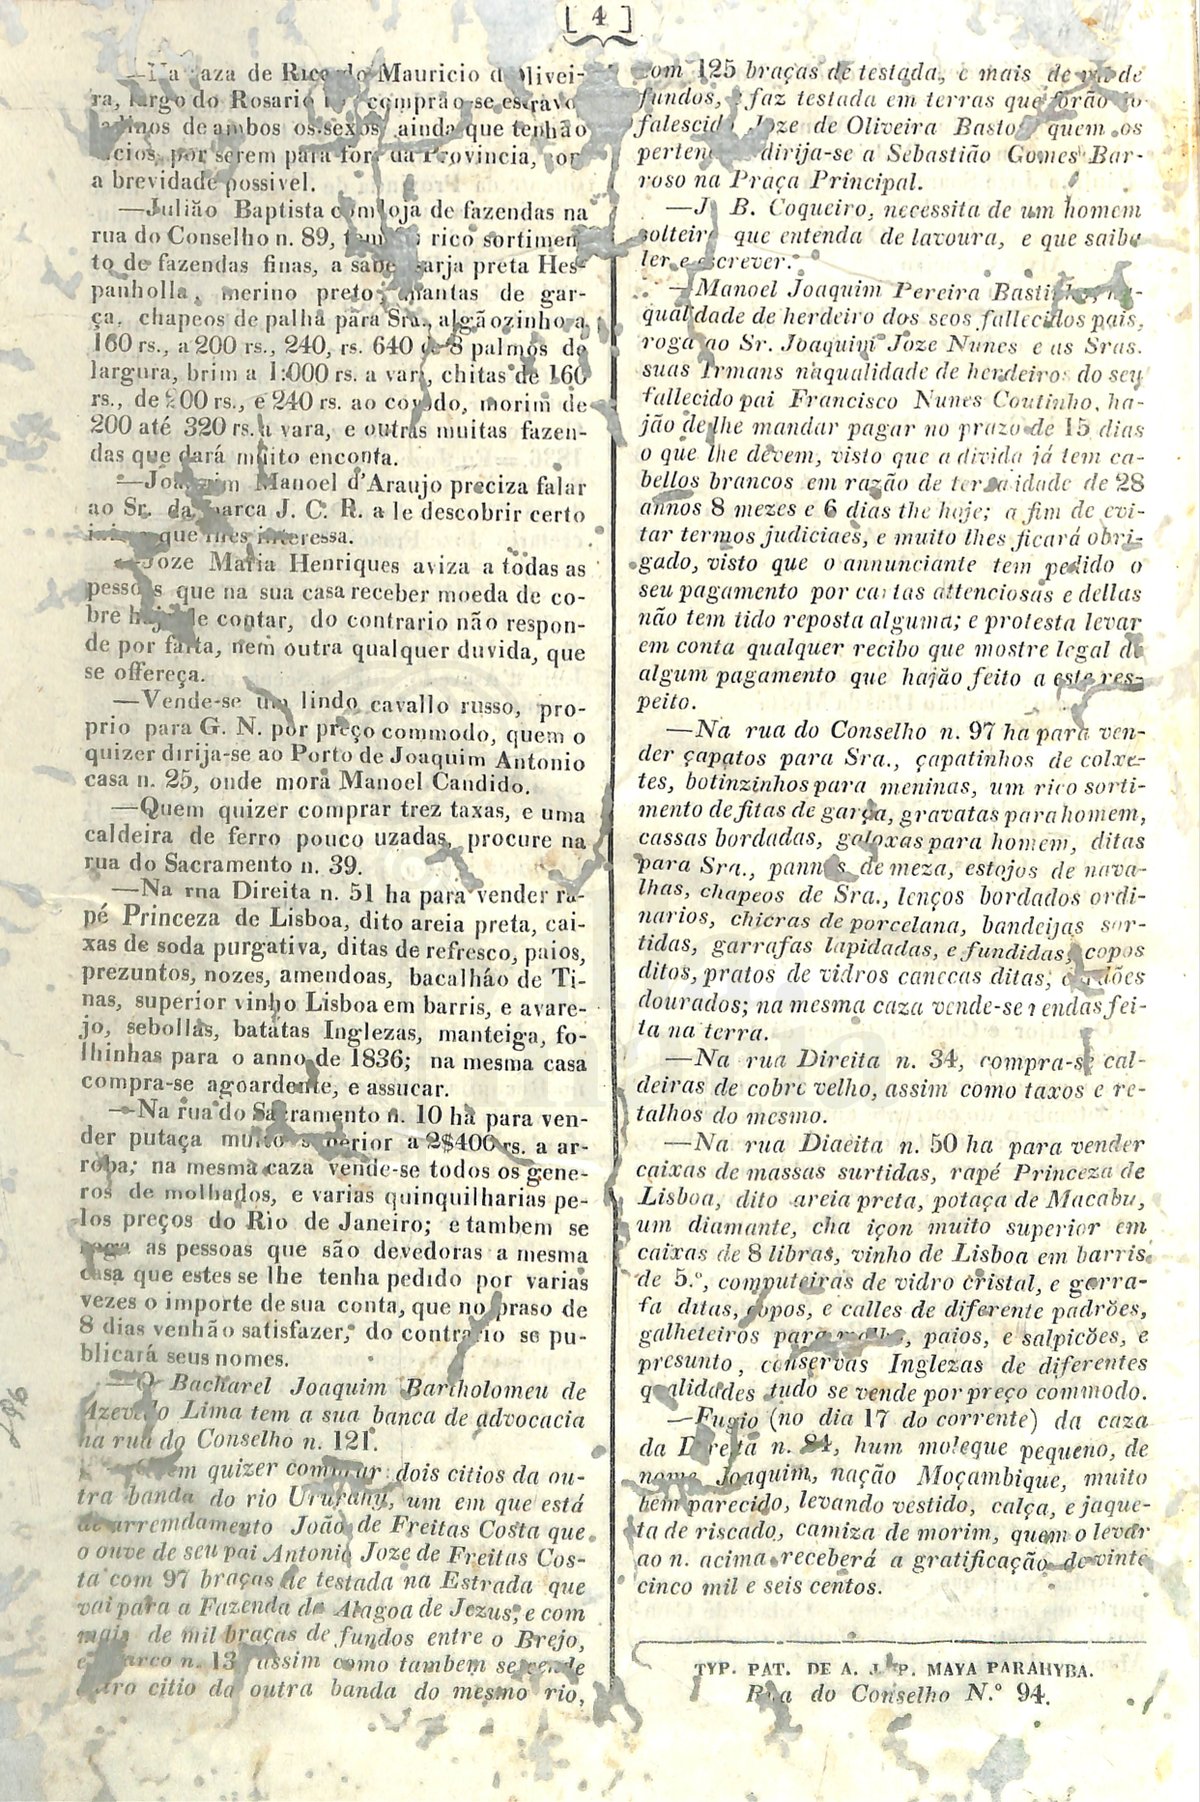 [ 4 ]
—Na caza de Ricardo Mauricio d'Olivei-
ra, largo do Rosario comprão-se escravo
ladinos de ambos os sexos, ainda que tenhão
vicios, por serem para fóra da Provincia, com
a brevidade possivel.
—Julião Baptista com loja de fazendas na
rua do Conselho n. 89, tem rico sortimen-
to de fazendas finas, a saber sarja preta Hes-
panholla, merino preto, mantas de gar-
ça, chapeos de palha para Sra., algãozinho a
160 rs., a 200 rs., 240, rs. 640 de 8 palmos de
largura, brim a 1:000 rs. a vara, chitas de 160
rs., de 200 rs., e 240 rs. ao covado, morim de
200 até 320 rs. a vara, e outras muitas fazen-
das que dará muito enconta.
—Joaquim Manoel d'Araujo preciza falar
ao Sr. da barca J. C. R. a le descobrir certo
que lhes interessa.
—Joze Maria Henriques aviza a todas as
pessoas que na sua casa receber moeda de co-
bre haja de contar, do contrario não respon-
de por falta, nem outra qualquer duvida, que
se offereça.
—Vende-se um lindo cavallo russo, pro-
prio para G. N. por preço commodo, quem o
quizer dirija-se ao Porto de Joaquim Antonio
casa n. 25, onde mora Manoel Candido.
—Quem quizer comprar trez taxas, e uma
caldeira de ferro pouco uzadas, procure na
rua do Sacramento n. 39.
—Na rna Direita n. 51 ha para vender ra-
pé Princeza de Lisboa, dito areia preta, cai-
xas de soda purgativa, ditas de refresco, paios,
prezuntos, nozes, amendoas, bacalháo de Ti-
nas, superior vinho Lisboa em barris, e avare-
jo, sebollas, batatas Inglezas, manteiga, fo-
lhinhas para o anno de 1836; na mesma casa
compra-se agoardente, e assucar.
—Na rua do Sacramento n. 10 ha para ven-
der putaça muito superior a 2$400 rs. a ar-
roba; na mesma caza vende-se todos os gene-
ros de molhados, e varias quinquilharias pe-
los preços do Rio de Janeiro; e tambem se
roga as pessoas que são devedoras a mesma
casa que estes se lhe tenha pedido por varias
vezes o importe de sua conta, que no praso de
8 dias venhão satisfazer, do contrario se pu-
blicará seus nomes.
—O Bacharel Joaquim Bartholomeu de
Azevedo Lima tem a sua banca de advocacia
na rua do Conselho n. 121.
—Quem quizer comprar dois citios da ou-
tra banda do rio Ururahy, um em que está
de arremdamento João de Freitas Costa que
o ouve de seu pai Antonio Joze de Freitas Cos-
ta com 97 braças de testada na Estrada que
vai para a Fazenda da Alagoa de Jezus, e com
mais de mil braças de fundos entre o Brejo,
e marco n. 13, assim como tambem se vende
outro citio da outra banda do mesmo rio,
com 125 braças de testada, e mais de mil de
fundos, e faz testada em terras que forão do
falescido Joze de Oliveira Bastos, quem os
pertender dirija-se a Sebastião Gomes Bar-
roso na Praça Principal.
—J. B. Coqueiro, necessita de um homem
solteiro que entenda de lavoura, e que saiba
ler e escrever.
—Manoel Joaquim Pereira Bastinho, na
qualidade de herdeiro dos seos fallecidos pais,
roga ao Sr. Joaquim Joze Nunes e as Sras.
suas Irmans naqualidade de herdeiros do seu
fallecido pai Francisco Nunes Coutinho, ha-
jão de lhe mandar pagar no prazo de 15 dias
o que lhe devem, visto que a divida já tem ca-
bellos brancos em razão de ter a idade de 28
annos 8 mezes e 6 dias the hoje; a fim de evi-
tar termos judiciaes, e muito lhes ficará obri-
gado, visto que o annunciante tem pedido o
seu pagamento por cartas attenciosas e dellas
não tem tido reposta alguma; e protesta levar
em conta qualquer recibo que mostre legal de
algum pagamento que hajão feito a este res-
peito.
—Na rua do Conselho n. 97 ha para ven-
der çapatos para Sra., çapatinhos de colxe-
tes, botinzinhos para meninas, um rico sorti-
mento de fitas de garça, gravatas para homem,
cassas bordadas, galoxas para homem, ditas
para Sra., pannos de meza, estojos de nava-
lhas, chapeos de Sra., lenços bordados ordi-
narios, chicras de porcelana, bandeijas sor-
tidas, garrafas lapidadas, e fundidas, copos
ditos, pratos de vidros canecas ditas, cordões
dourados; na mesma caza vende-se rendas fei-
ta na terra.
—Na rua Direita n. 34, compra-se cal-
deiras de cobre velho, assim como taxos e re-
talhos do mesmo.
—Na rua Diaeita n. 50 ha para vender
caixas de massas surtidas, rapé Princeza de
Lisboa, dito areia preta, potaça de Macabu,
um diamante, cha içon muito superior em
caixas de 8 libras, vinho de Lisboa em barris
de 5.º, computeiras de vidro cristal, e garra-
fa ditas, copos, e calles de diferente padrões,
galheteiros para molho, paios, e salpicões, e
presunto, conservas Inglezas de diferentes
qualidades tudo se vende por preço commodo.
—Fugio (no dia 17 do corrente) da caza
da Direita n. 84, hum moleque pequeno, de
nome Joaquim, nação Moçambique, muito
bem parecido, levando vestido, calça, e jaque-
ta de riscado, camiza de morim, quem o levar
ao n. acima receberá a gratificação de vinte
cinco mil e seis centos.
TYP. PAT. DE A. J. P. MAYA PARAHYBA.
Rua do Conselho N.º 94.